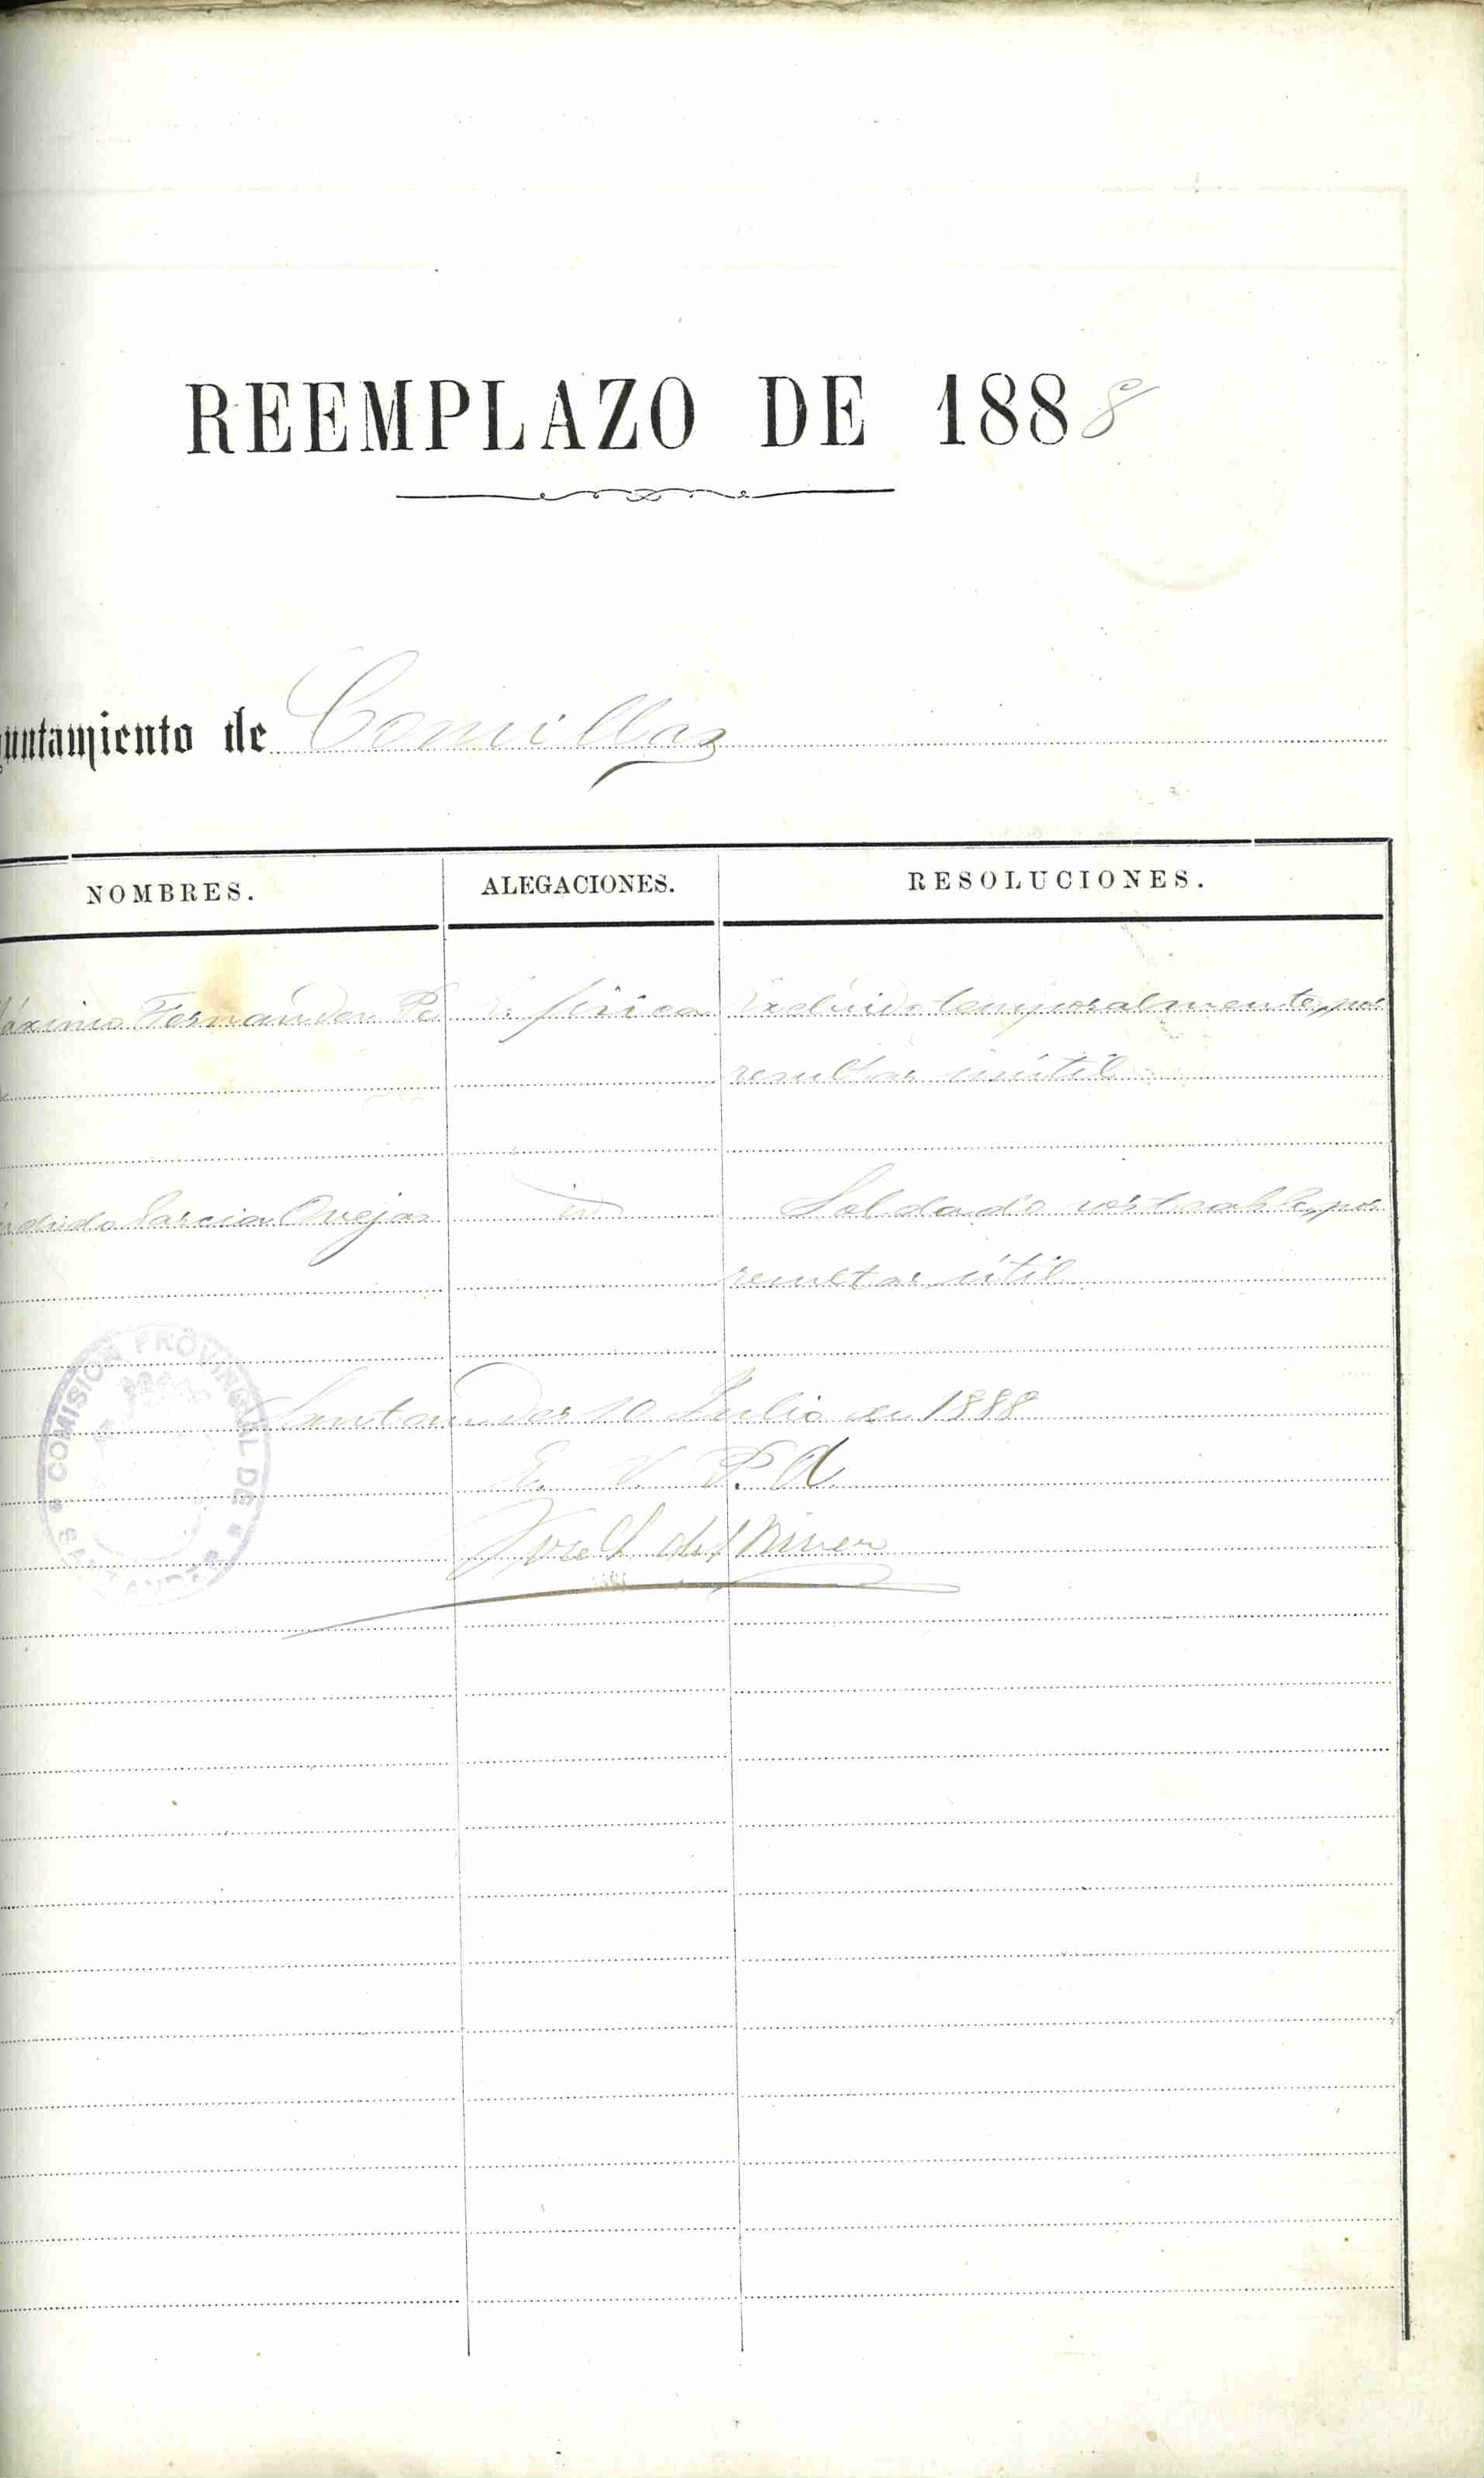 REEMPLAZO DE 1888
yuntamiento de Comillas
NOMBRES. ALEGACIONES. RESOLUCIONES.
áximo Fernandez Pe física Excluido temporalmente, por
resultar inútil
ndido Garcia Ovejas id Soldado sorteable, por
resultar útil
Santander 10 Julio de 1888
E. V. P. A.
Jose del
COMISIÓN PROVINCIAL DE SANTANDER